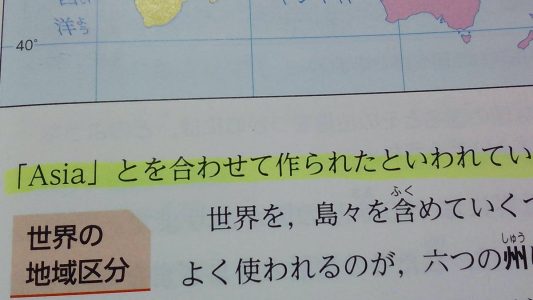 洋
40°
「Asia」とを合わせて作られたといわれてい
世界の
地域区分
世界を,島々を含めていくつ
ふく
よく使われるのが,六つの州
しゅう